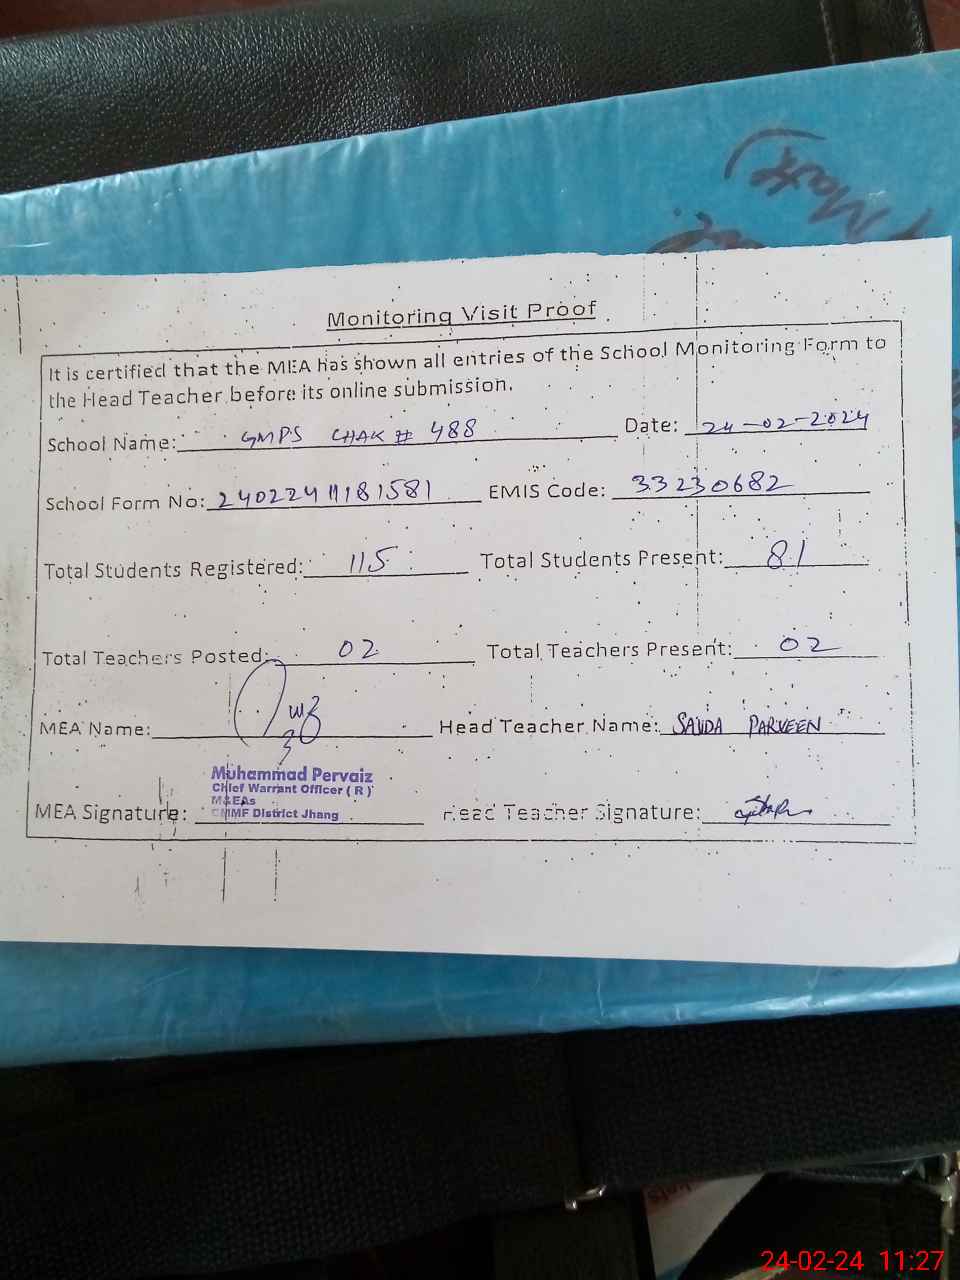 (Matt)
Monitoring Visit Proof
It is certified that the MEA has shown all entries of the School Monitoring Form to
the Head Teacher before its online submission.
School Name: GMPS CHAK # 488 Date: 24-02-2024
School Form No: 24022411181581 EMIS Code: 33230682
Total Students Registered: 115 Total Students Present: 81
Total Teachers Posted: 02 Total Teachers Present: 02
MEA Name: Head Teacher Name: SAJDA PARVEEN
Muhammad Pervaiz
Chief Warrant Officer ( R )
M&EAs
CMMF District Jhang
MEA Signature: Head Teacher Signature:
24-02-24 11:27